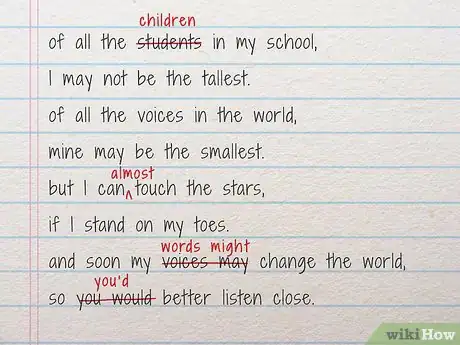 children
of all the students in my school,
I may not be the tallest.
of all the voices in the world,
mine may be the smallest.
almost
but I can ^ touch the stars,
if I stand on my toes.
words might
and soon my voices may change the world,
you'd
so you would better listen close.
wikiHow